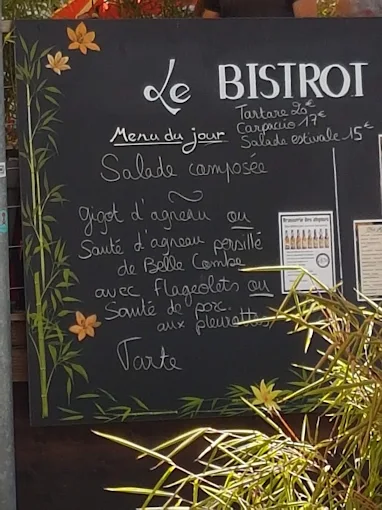 Le BISTROT
Tartare 20€
Carpaccio 17€
Salade estivale 15€
Menu du jour
Salade composée
Gigot d'agneau ou
Sauté d'agneau persillé
de Belle Combe
avec Flageolets ou
Sauté de porc
aux pleurottes
Tarte